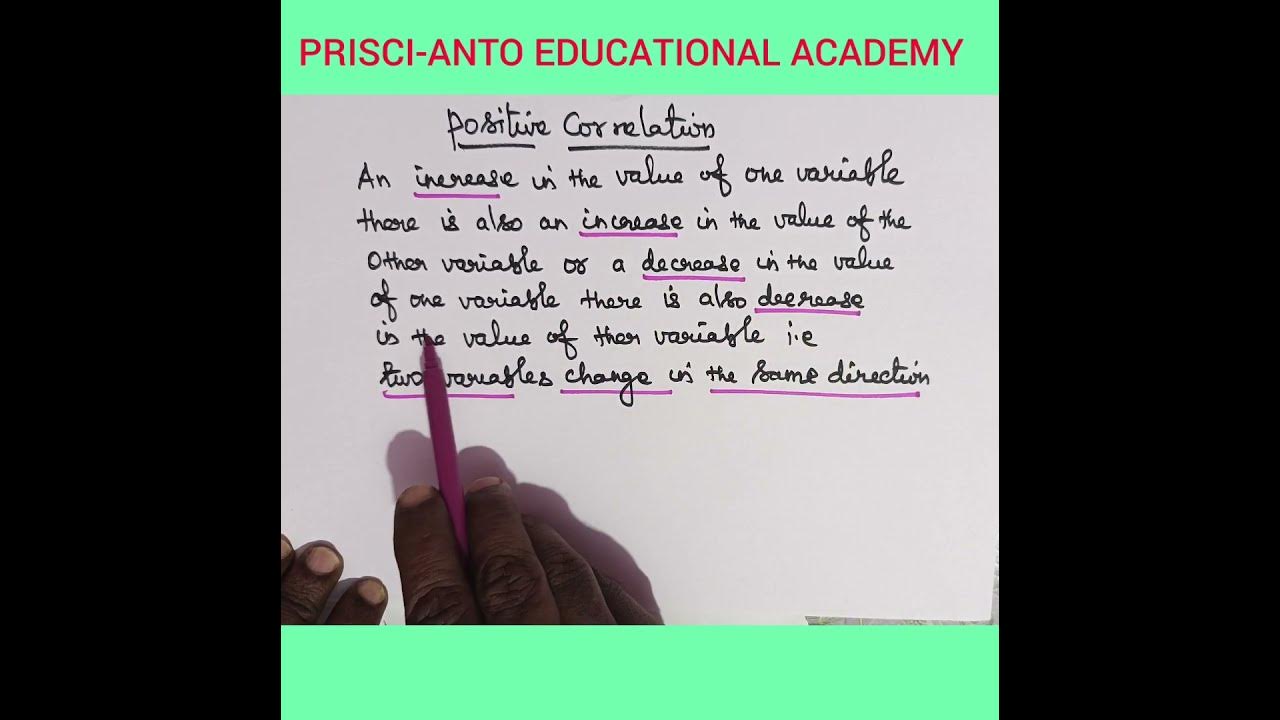 PRISCI-ANTO EDUCATIONAL ACADEMY
Positive Correlation
An increase in the value of one variable
there is also an increase in the value of the
Other variable or a decrease in the value
of one variable there is also decrease
is the value of ther variable i.e
two variables change in the same direction